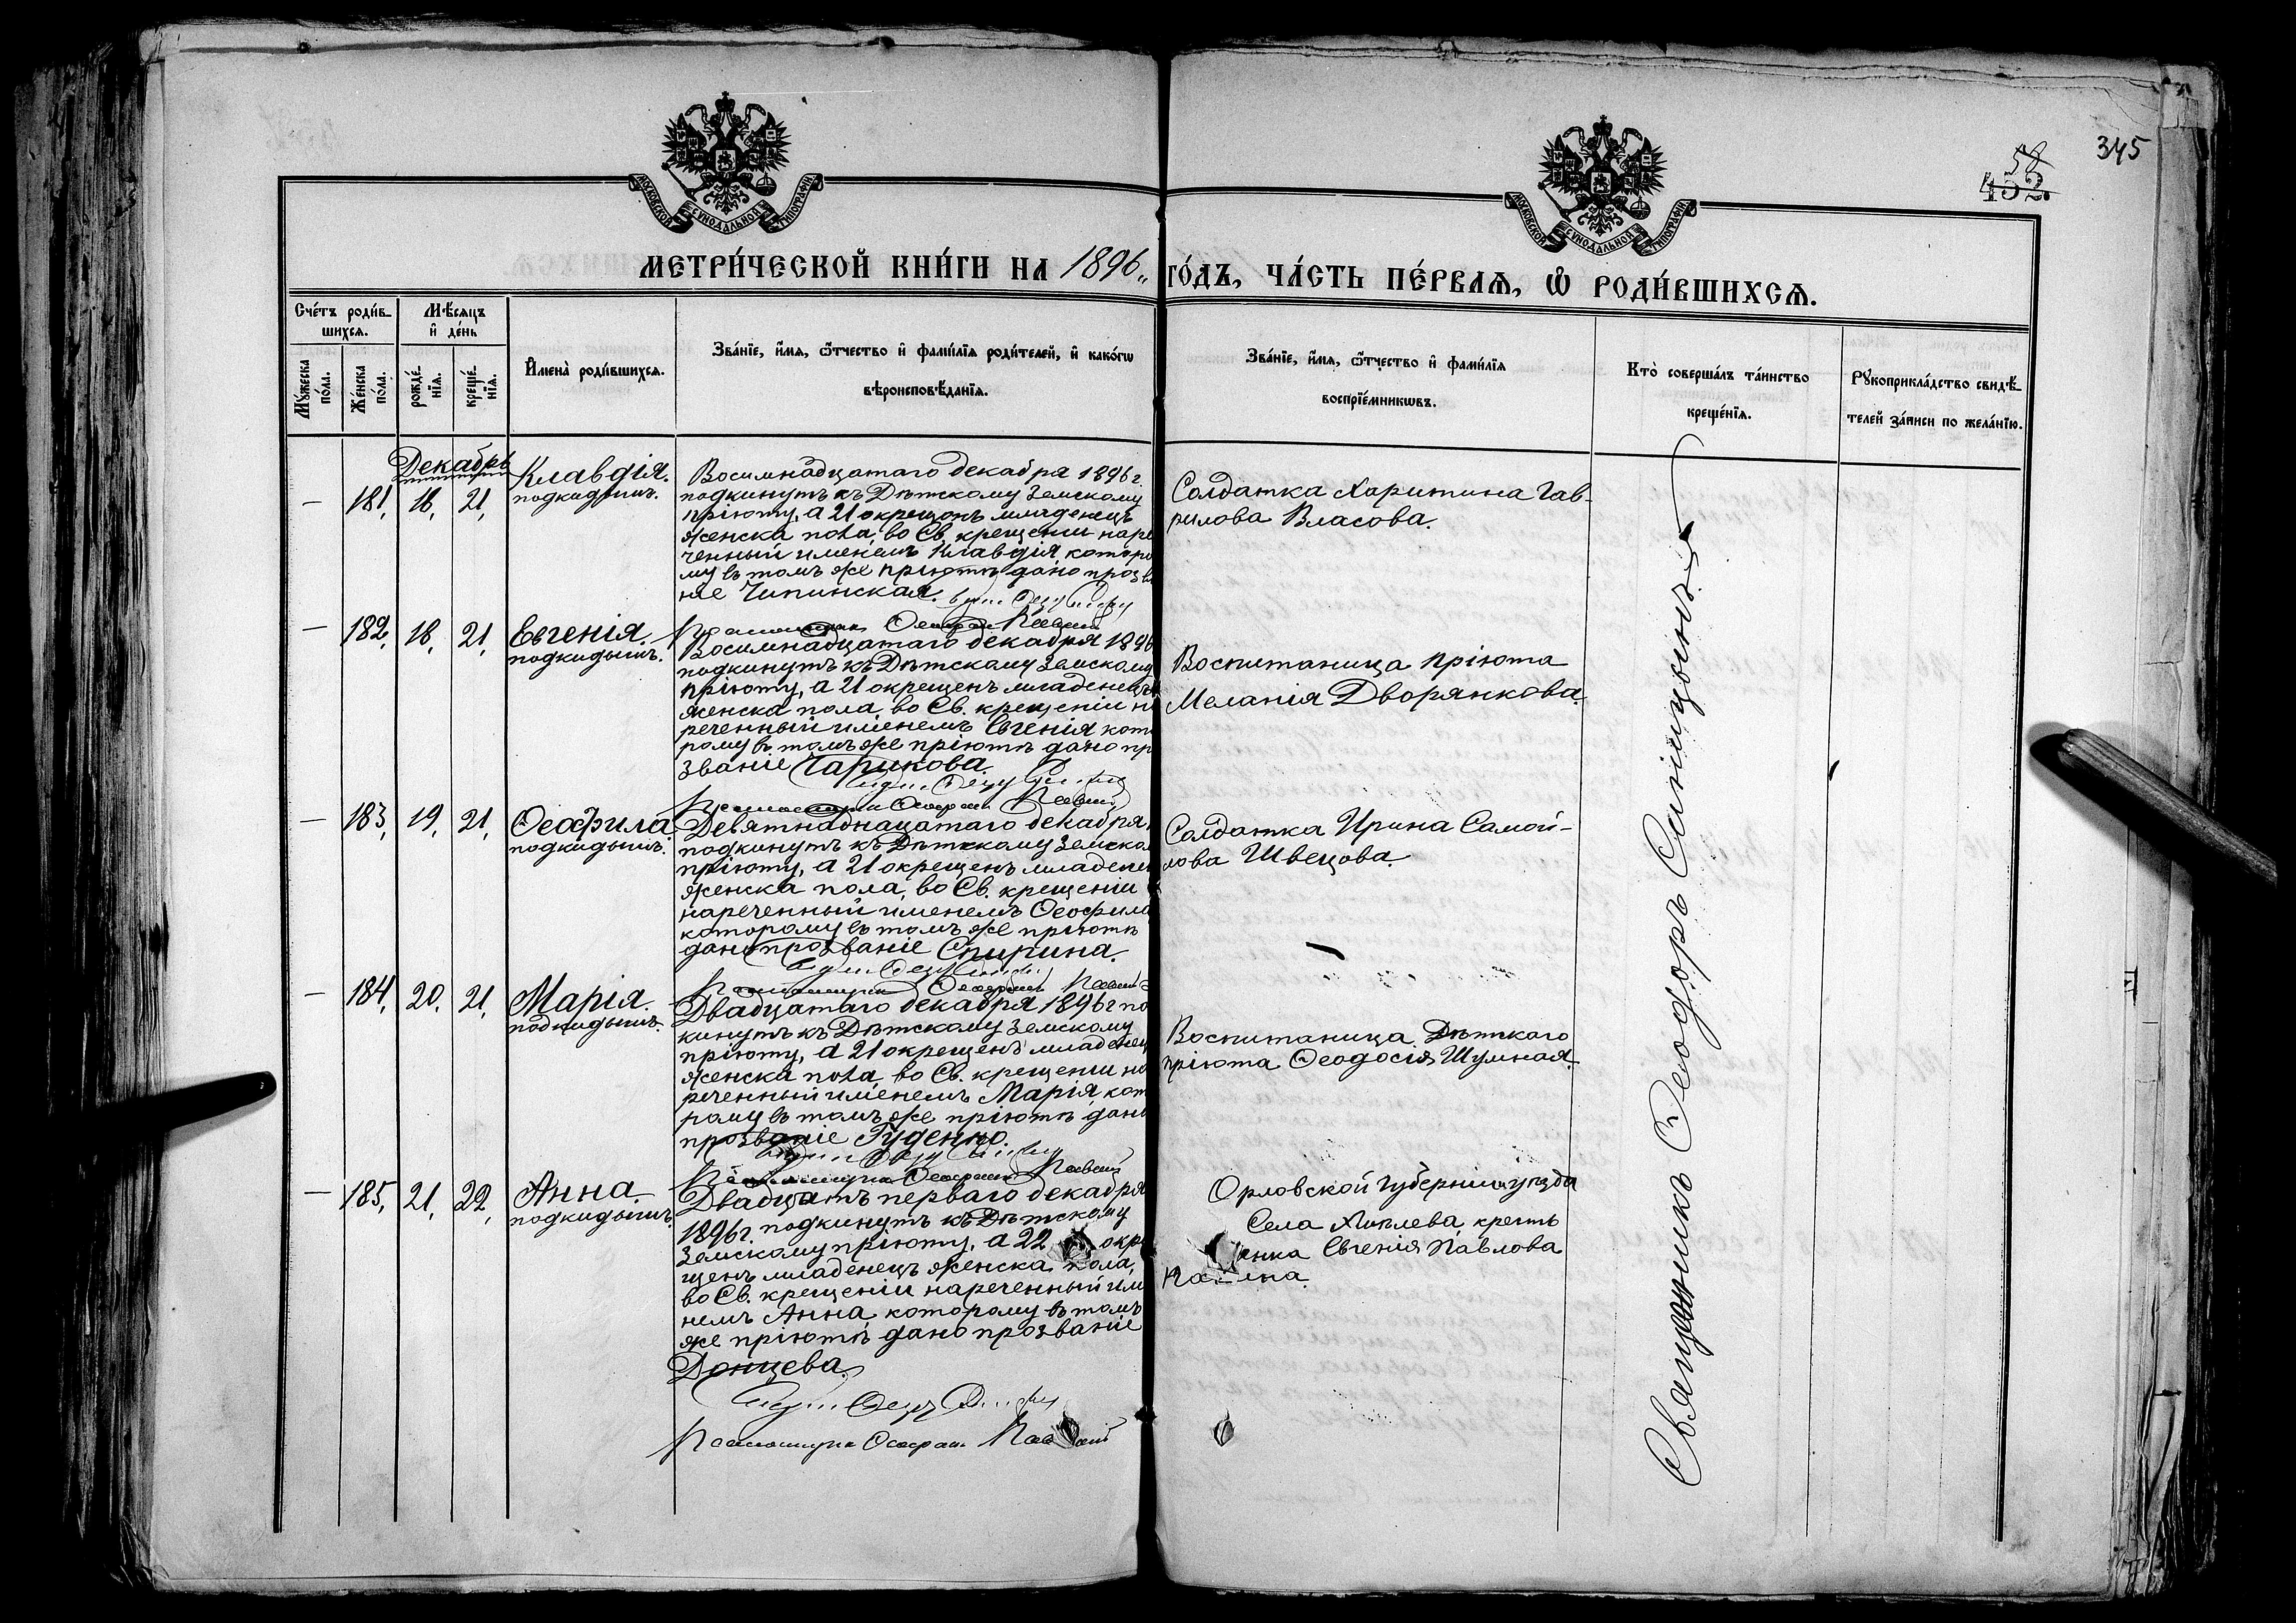 345
58
452.
МОСКОВСКОЙ СѴНОДАЛЬНОЙ ТИПОГРАФІИ
МОСКОВСКОЙ СѴНОДАЛЬНОЙ ТИПОГРАФІИ
МЕТРИ́ЧЕСКОЙ КНИ́ГИ НА 1896 ГО́ДЪ, ЧА́СТЬ ПЕ́РВАѦ, Ѽ РОДИ́ВШИХСѦ.
Сче́тъ роди́в-
шихсѧ.
Мѣ́сѧцъ
и҆ де́нь
Мꙋ́жеска
по́ла.
Же́нска
по́ла.
рожде́-
нїѧ.
креще́-
нїѧ.
И҆мена̀ роди́вшихсѧ.
Зва́нїе, и҆́мѧ, ѻ҆́тчество и҆ фами́лїѧ роди́телей, и҆ како́гѡ
вѣроисповѣ́данїѧ.
Зва́нїе, и҆́мѧ, ѻ҆́тчество и҆ фами́лїѧ
воспрїе́мникѡвъ.
Кто̀ соверша́лъ та́инство
креще́нїѧ.
Рꙋкоприкла́дство свидѣ́-
телей за́писи по жела́нїю.
Декабрь
— 181, 18, 21,
Клавдія.
подкидышъ.
Восимнадцатаго декабря 1896 г.
подкинутъ къ Дѣтскому Земскому
пріюту, а 21 окрещонъ младенецъ
женска пола, во Св. крещеніи наре
ченный именемъ Клавдія, которо
му въ томъ же пріютѣ дано прозва
ніе Чипинская.
Солдатка Харитина Гав-
рилова Власова.
— 182, 18, 21,
Евгенія.
подкидышъ.
Восимнадцатаго декабря 1896
подкинутъ къ Дѣтскаму Земскому
пріюту, а 21 окрещенъ младенецъ
женска пола, во Св. крещеніи на
реченный именемъ Евгенія, кото
рому въ томъ же пріютѣ дано про
званіе Чарикова.
Воспитаница пріюта
Меланія Дворянкова.
— 183, 19, 21,
Ѳеофила.
подкидышъ.
Девятнаднацатаго декабря
подкинутъ къ Дѣтскому Земско
пріюту, а 21 окрещенъ младене
женска пола, во Св. крещеніи
нареченный именемъ Ѳеофила
которому въ томъ же пріютѣ
дано прозваніе Спирина.
Солдатка Ирина Самой-
лова Швецова.
— 184, 20, 21,
Марія.
подкидышъ.
Двадцатаго декабря 1896 г по
кинутъ къ Дѣтскому Земскому
пріюту, а 21 окрещенъ младенец
женска пола, во Св. крещеніи на
реченный именемъ Марія, кот
рому въ томъ же пріютѣ дано
прозваніе Гуденко.
Воспитаница Дѣткаго
пріюта Ѳеодосія Шумная.
— 185, 21, 22,
Анна.
подкидышъ.
Двадцать перваго декабря
1896 г. подкинутъ къ Дѣтскому
Земскому пріюту, а 22 окре
щенъ младенецъ женска пола,
во Св. крещеніи нареченный име
немъ Анна, которому въ томъ
же пріютѣ дано прозваніе
Донцева.
Орловской губерніи уѣзда
Села крестъ
янка Евгенія Павлова
Священникъ Ѳеодоръ Синицынъ